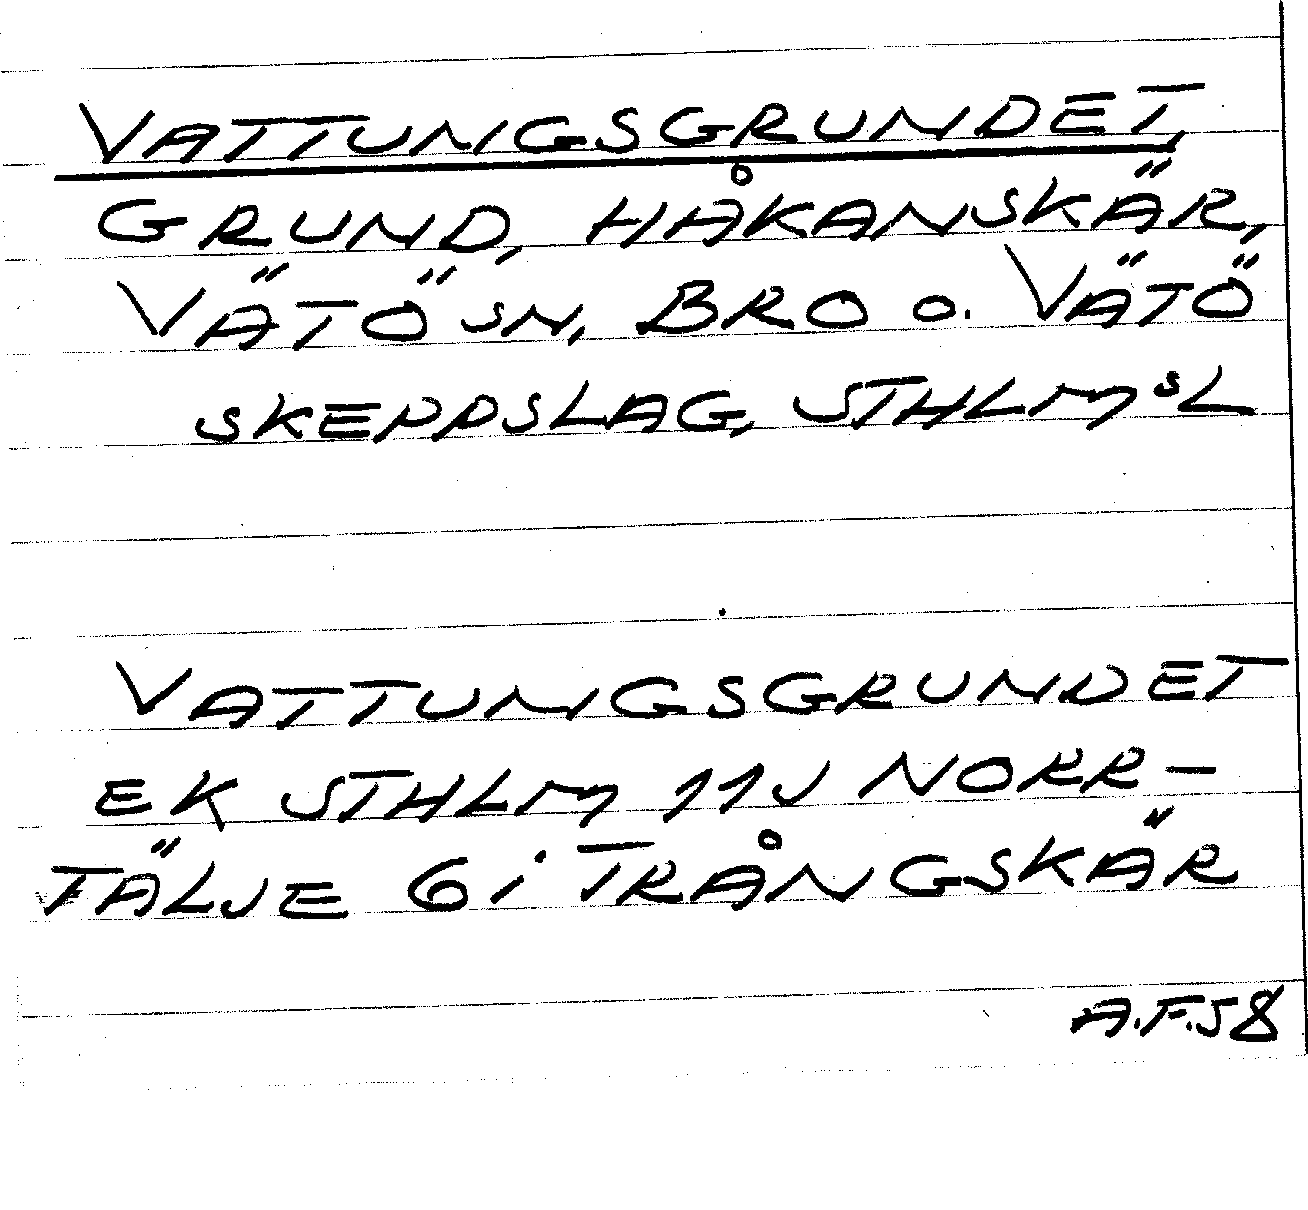 VATTUNGSGRUNDET,
GRUND, HÅKANSKÄR,
VÄTÖ SN, BRO O. VÄTÖ
SKEPPSLAG, STHLMSL
VATTUNGSGRUNDET
EK STHLM 11J NORR-
TÄLJE 6i TRÅNGSKÄR
A.F.58